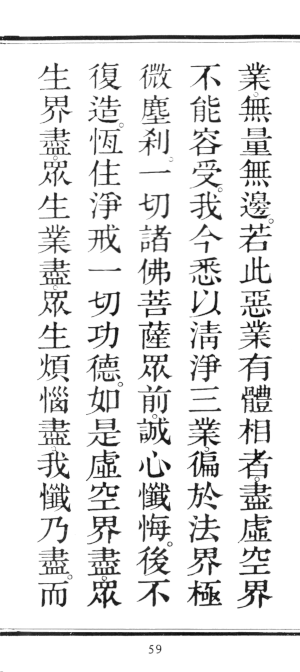 業。無量無邊。若此惡業有體相者。盡虛空界
不能容受。我今悉以清淨三業。徧於法界極
微塵剎。一切諸佛菩薩眾前。誠心懺悔。後不
復造。恆住淨戒一切功德。如是虛空界盡。眾
生界盡。眾生業盡。眾生煩惱盡。我懺乃盡。而
59